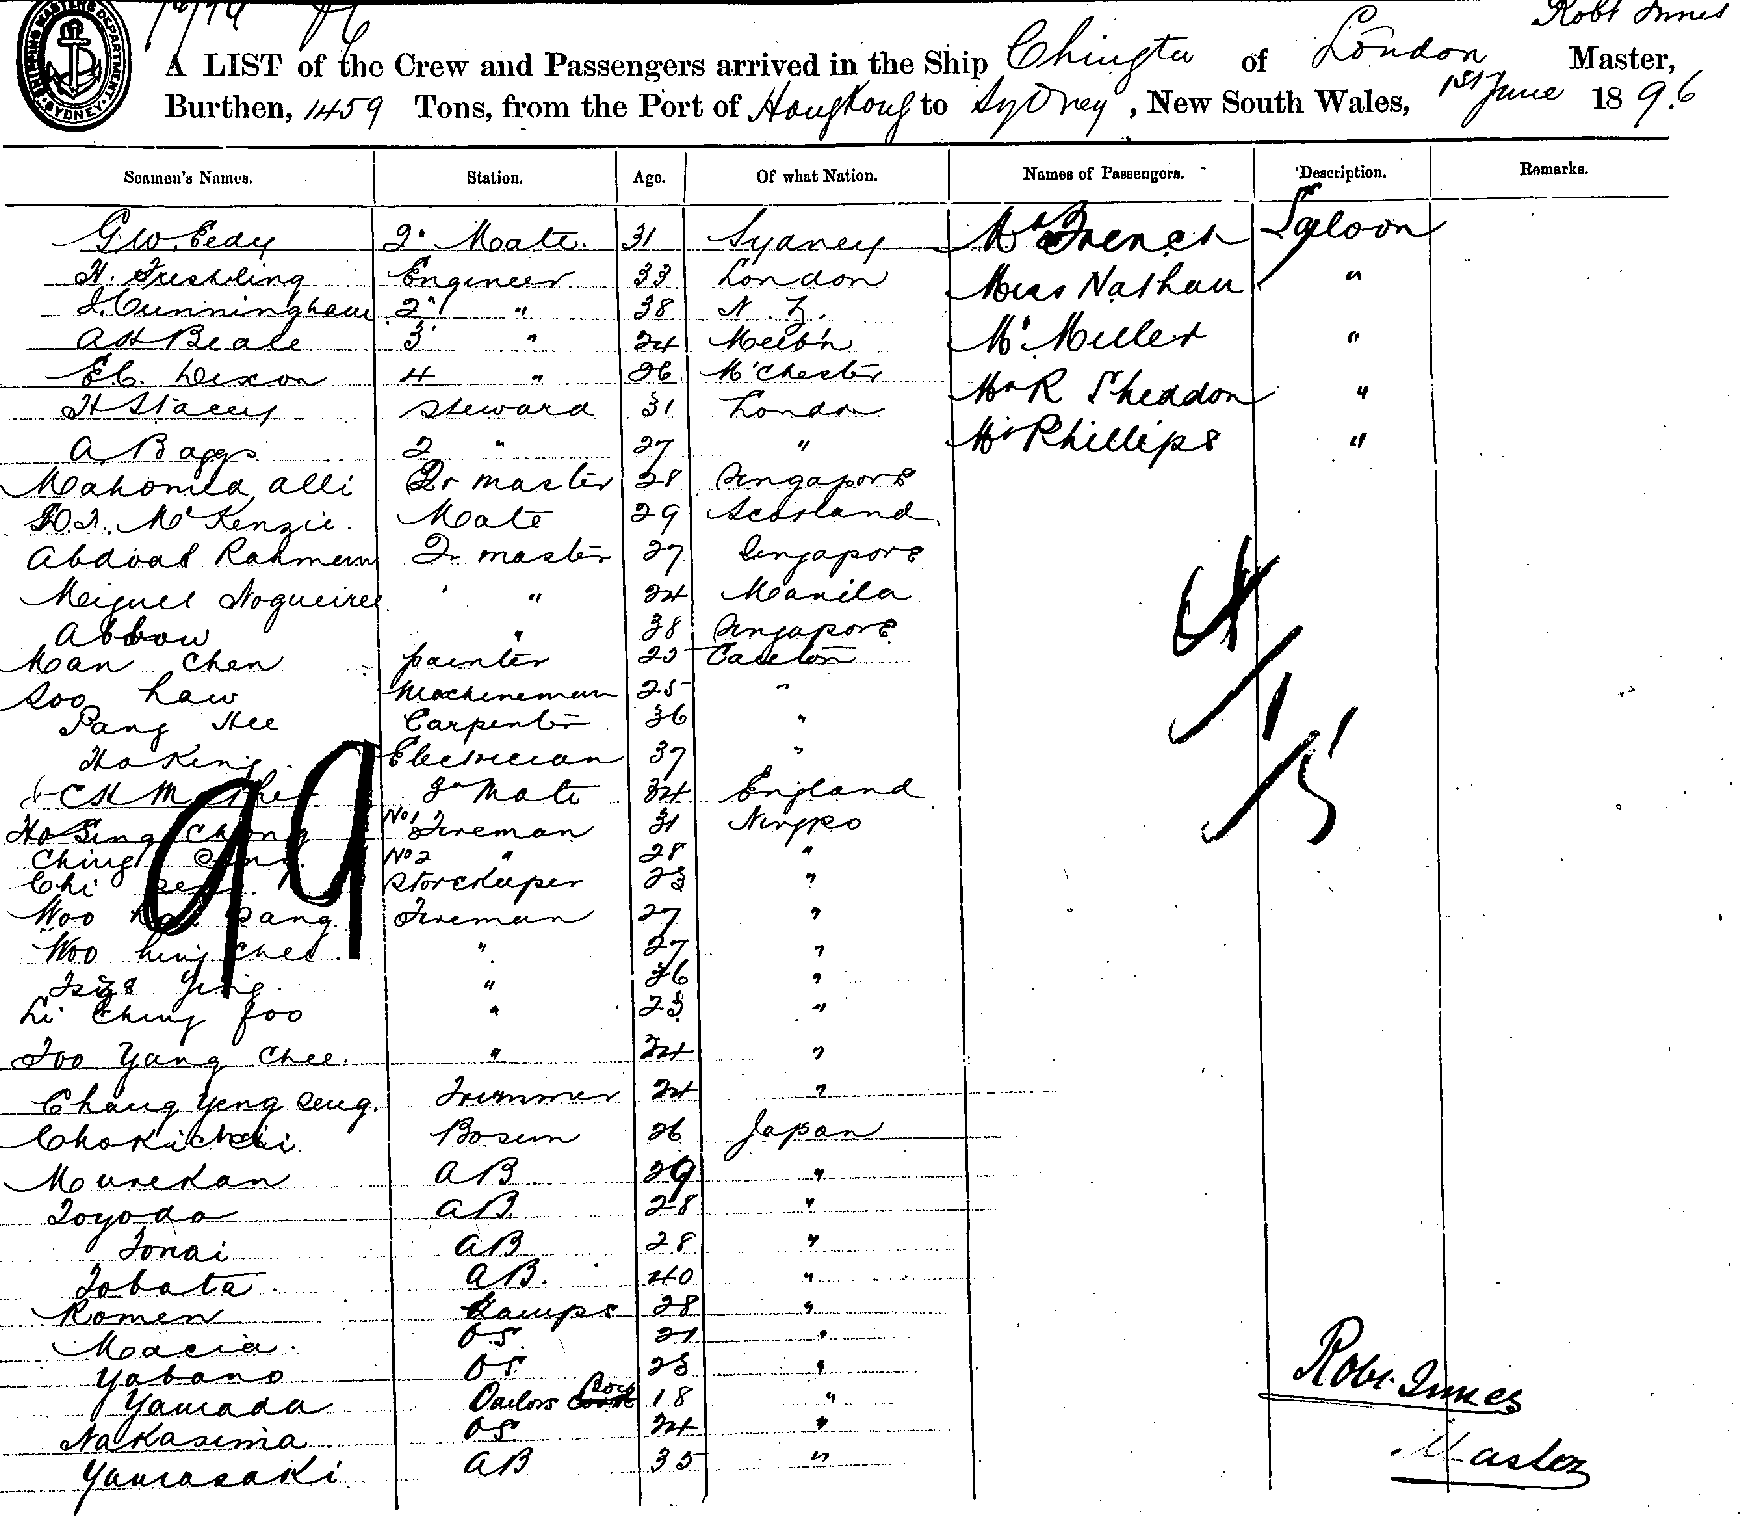 Robt Innes
A LIST of the Crew and Passengers arrived in the Ship Chingtu of London Master,
Burthen, 1459 Tons, from the Port of Hongkong to Sydney, New South Wales, 1st June 1896
Seamen's Names. Station. Age. Of what Nation. Names of Passengers. Description. Remarks.
G.W. Eedy 2d Mate. 31 Sydney French Saloon
H. Engineer 33 London Miss Nathan "
J. Cunningham 2d " 38 N. Z. Mr Miller "
A H Beale 3 " 24 Melb'n Mr R Sheddon "
E C. Dixon 4 " 26 M'Chester Mr Phillips "
H Stacey Steward 31 London
A. Baggs 2 " 27 "
Alli Qr master 28 Singapore
McKenzie. Mate 29 Scotland
Rahman Qr master 27 Singapore
Miguel " 24 Manila
Abbow " 38 Singapore
Man Chen painter 25 Canton
Soo Law Machineman 25 "
Pang Hee Carpenter 36 "
Ho King. Electrician 37 "
C H 3rd Mate 34 England
Ho Sing Chong No 1 Fireman 31 Ningpo
Ching No 2 " 28 "
Chi Storekeeper 23 "
Woo Fireman 27 "
Woo " 27 "
Ying " 26 "
Li Ching Foo " 23 "
Foo Yang Chee. " 24 "
Chang Yeng Seng. Trimmer 24 "
Bosun 26 Japan
Murekan AB 29 "
Toyoda AB 28 "
Tonai AB 28 "
Tobata AB. 40 "
Komen Lamps 28 "
Macia. OS 21 "
Yabano OS 23 "
Yamada Sailors Boy 18 "
Nakasima OS 24 "
Yamasaki AB 35 "
99
Robt. Innes
Master